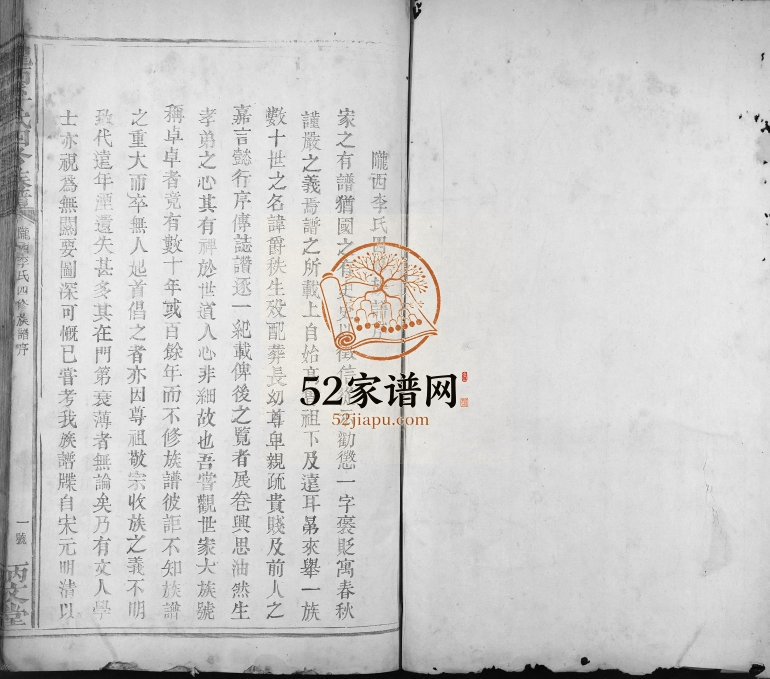 隴西李氏四
家之有譜猶國之有 徵信 勸懲一字褒貶寓春秋
謹嚴之義焉譜之所載上自始 祖下及遠耳昴來舉一族
數十世之名諱爵秩生歿配葬長幼尊卑親疏貴賤及前人之
嘉言懿行序傳誌讚逐一紀載俾後之覽者展卷興思油然生
孝弟之心其有裨於世道人心非細故也吾嘗觀世家大族號
稱卓卓者竟有數十年或百餘年而不修族譜彼詎不知族譜
之重大而卒無人起首倡之者亦因尊祖敬宗收族之義不明
致代遠年湮遺失甚多其在門第衰薄者無論矣乃有文人學
士亦視為無關要圖深可慨已嘗考我族譜牒自宋元明清以
隴西李氏四修族譜序
一號
堂
52家谱网
52jiapu.com